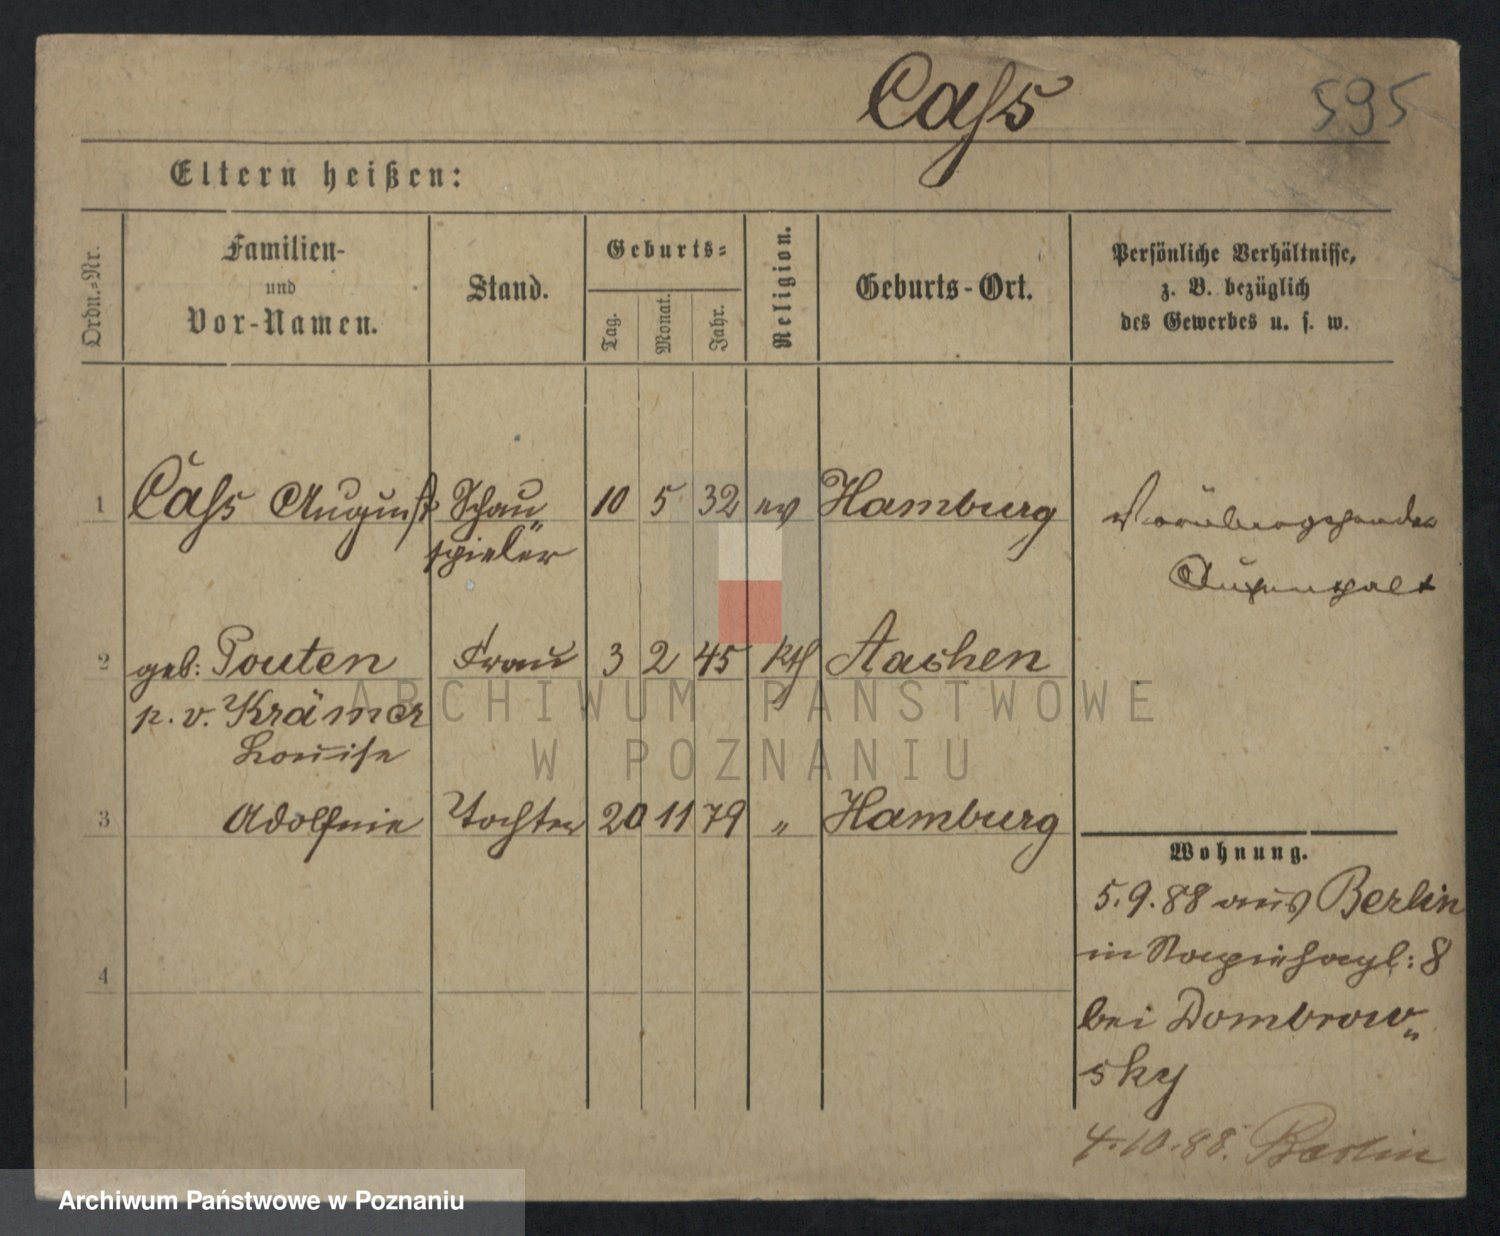 Caſs
595
Eltern heißen:
Ordn.-Nr.
Familien-
und
Vor-Namen.
Stand.
Geburts-
Tag.
Monat.
Jahr.
Religion.
Geburts-Ort.
Persönliche Verhältnisse,
z. B. bezüglich
des Gewerbes u. s. w.
1 Caſs August Schau„ 10 5 32 ev Hamburg
spieler
Vorübergehender
Aufenthalt
2 geb: Pouten Frau 3 2 45 kth Aachen
p. v. Krämer
Louise
3 Adolfine Tochter 20 11 79 „ Hamburg
4
Wohnung.
5.9.88 aus Berlin
in : 8
bei Dombrow„
sky
4.10.88. Berlin
ARCHIWUM PAŃSTWOWE
W POZNANIU
Archiwum Państwowe w Poznaniu